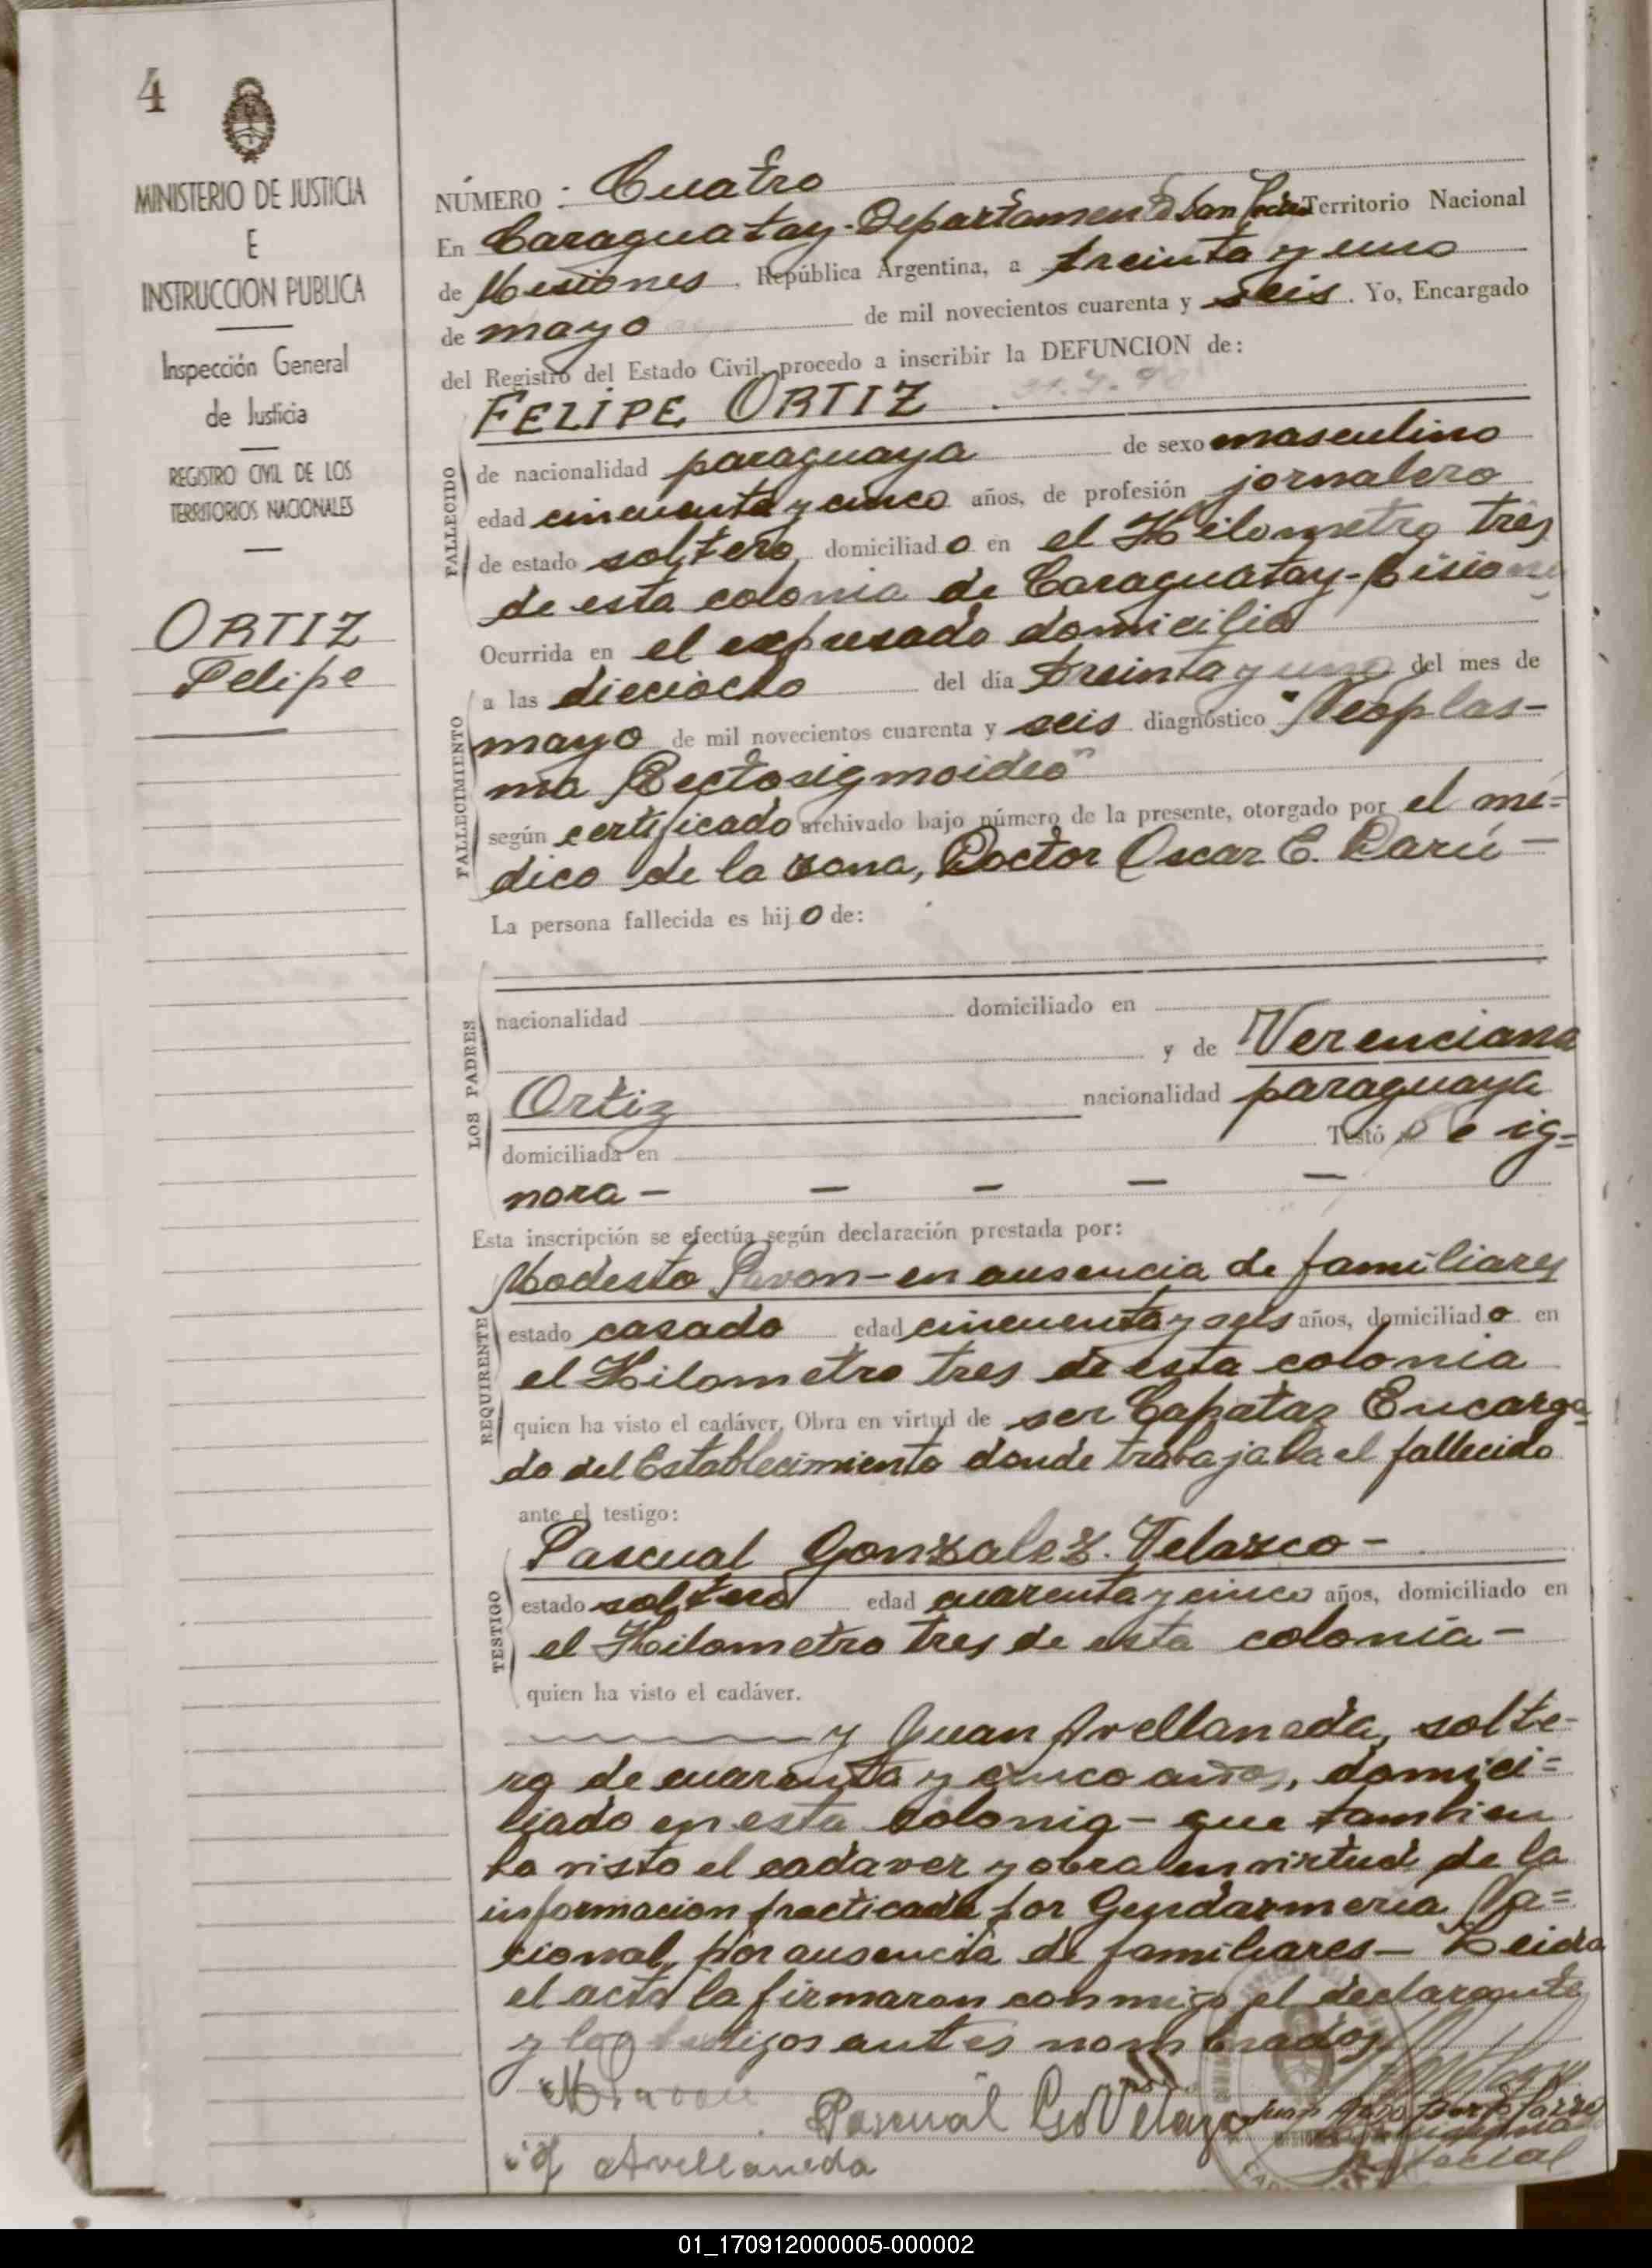 4
MINISTERIO DE JUSTICIA
E
INSTRUCCION PUBLICA
Inspección General
de Justicia
REGISTRO CIVIL DE LOS
TERRITORIOS NACIONALES
ORTIZ
Felipe
NÚMERO: Cuatro
En Caraguatay-Departamento San Territorio Nacional
de Misiones, República Argentina, a treinta y uno
de mayo de mil novecientos cuarenta y seis. Yo, Encargado
del Registro del Estado Civil, procedo a inscribir la DEFUNCION de:
FELIPE ORTIZ
FALLECIDO
de nacionalidad paraguaya de sexo masculino
edad cincuenta y cinco años, de profesión jornalero
de estado soltero, domiciliado en el Kilometro tres
de esta colonia de Caraguatay-
Ocurrida en el expresado domicilio
FALLECIMIENTO
a las dieciocho del día treinta y uno del mes de
mayo de mil novecientos cuarenta y seis diagnóstico "Neoplas-
ma Rectosigmoideo"
según certificado archivado bajo número de la presente, otorgado por el mé=
dico de la zona, Doctor Oscar E. Darú-
La persona fallecida es hijo de:
LOS PADRES
nacionalidad domiciliado en
y de Verenciana
Ortiz nacionalidad paraguaya
domiciliada en Testó Se ig=
nora - - - - -
Esta inscripción se efectúa según declaración prestada por:
REQUIRENTE
Modesto Pavon-en ausencia de familiares
estado casado edad cincuenta y seis años, domiciliado en
el Kilometro tres de esta colonia
quien ha visto el cadáver. Obra en virtud de ser Capataz Encarga=
do del Establecimiento donde trabajaba el fallecido
ante el testigo:
TESTIGO
Pascual Gonzalez Velazco-
estado soltero edad cuarenta y cinco años, domiciliado en
el Kilometro tres de esta colonia-
quien ha visto el cadáver.
y Juan Avellaneda, solte-
ro de cuarenta y cinco años, domici=
liado en esta colonia- que tambien
ha visto el cadaver y obra en virtud de la
informacion practicada por Gendarmeria Na=
cional, por ausencia de familiares- Leida
el acta la firmaron conmigo el declarante
y los testigos antes nombrados
MPavon
Pascual Go Velazco
Avellaneda
01_170912000005-000002